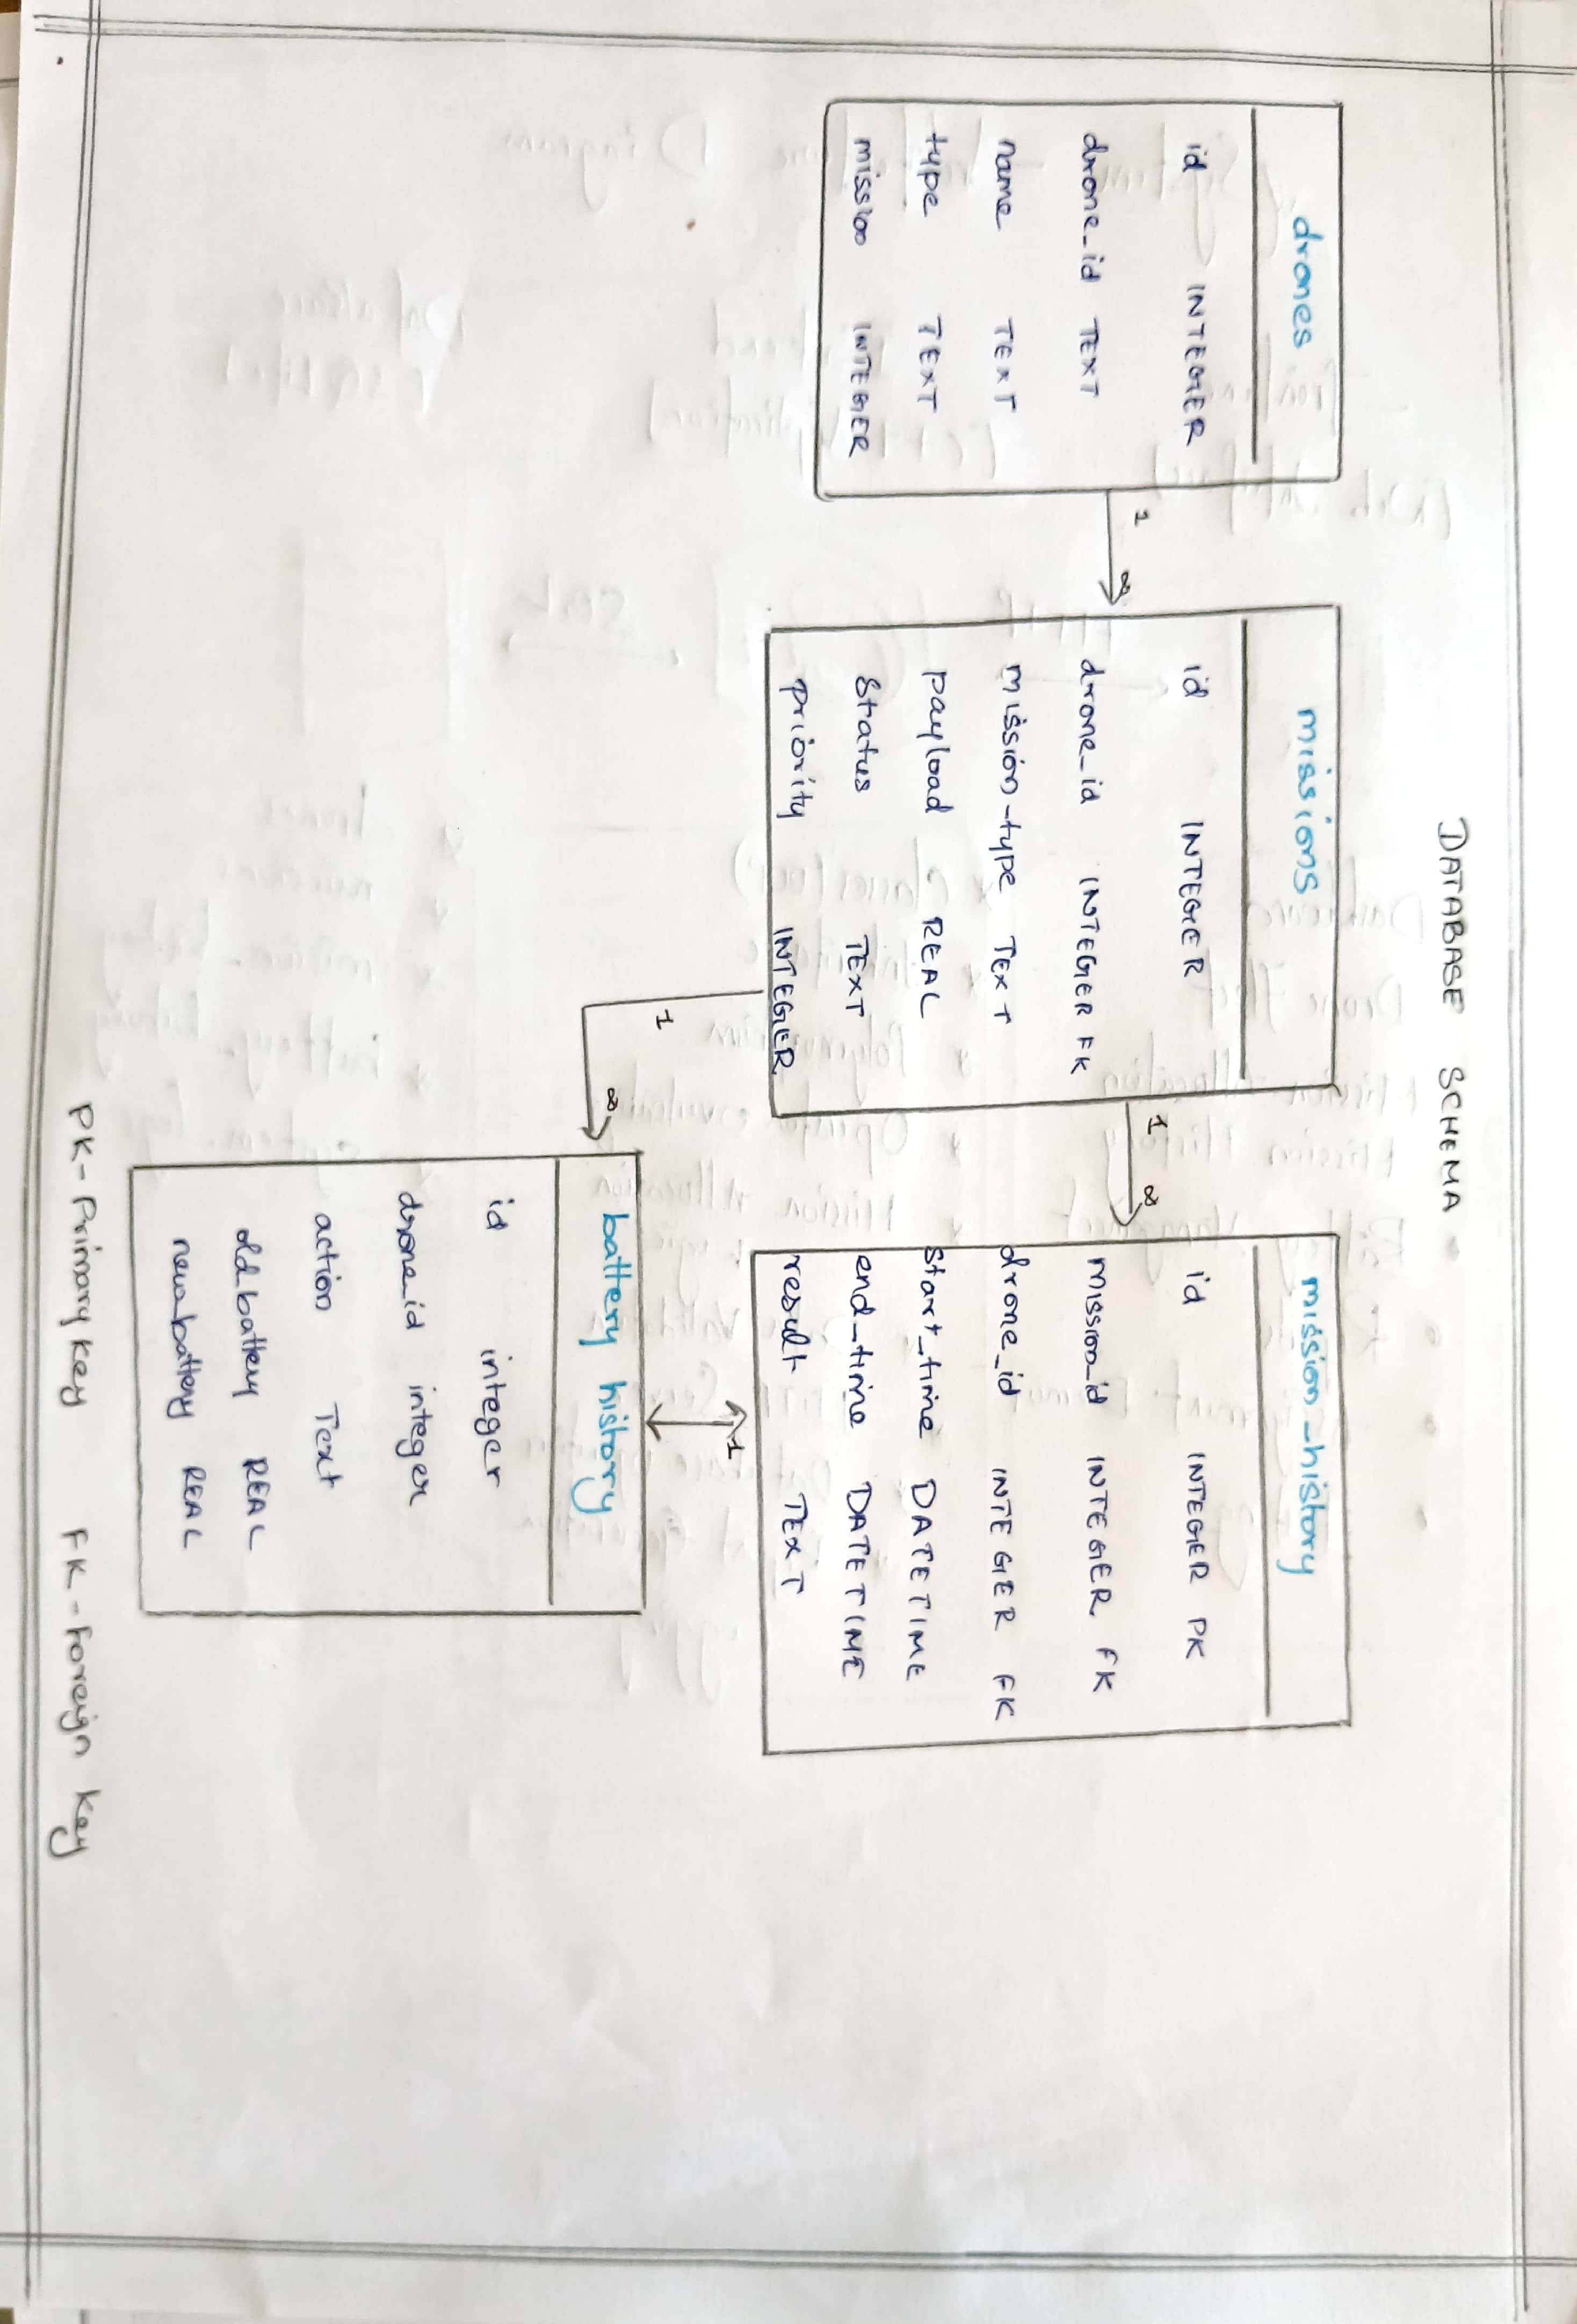 DATABASE SCHEMA
drones
id INTEGER
drone_id TEXT
name TEXT
type TEXT
mission INTEGER
1 ∞
missions
id INTEGER
drone_id INTEGER FK
mission-type TEXT
payload REAL
Status TEXT
priority INTEGER
1 ∞
mission-history
id INTEGER PK
mission_id INTEGER FK
drone_id INTEGER FK
start_time DATETIME
end-time DATETIME
result TEXT
1 ∞
1
battery history
id integer
drone_id integer
action Text
old battery REAL
new battery REAL
PK-Primary key FK-Foreign key